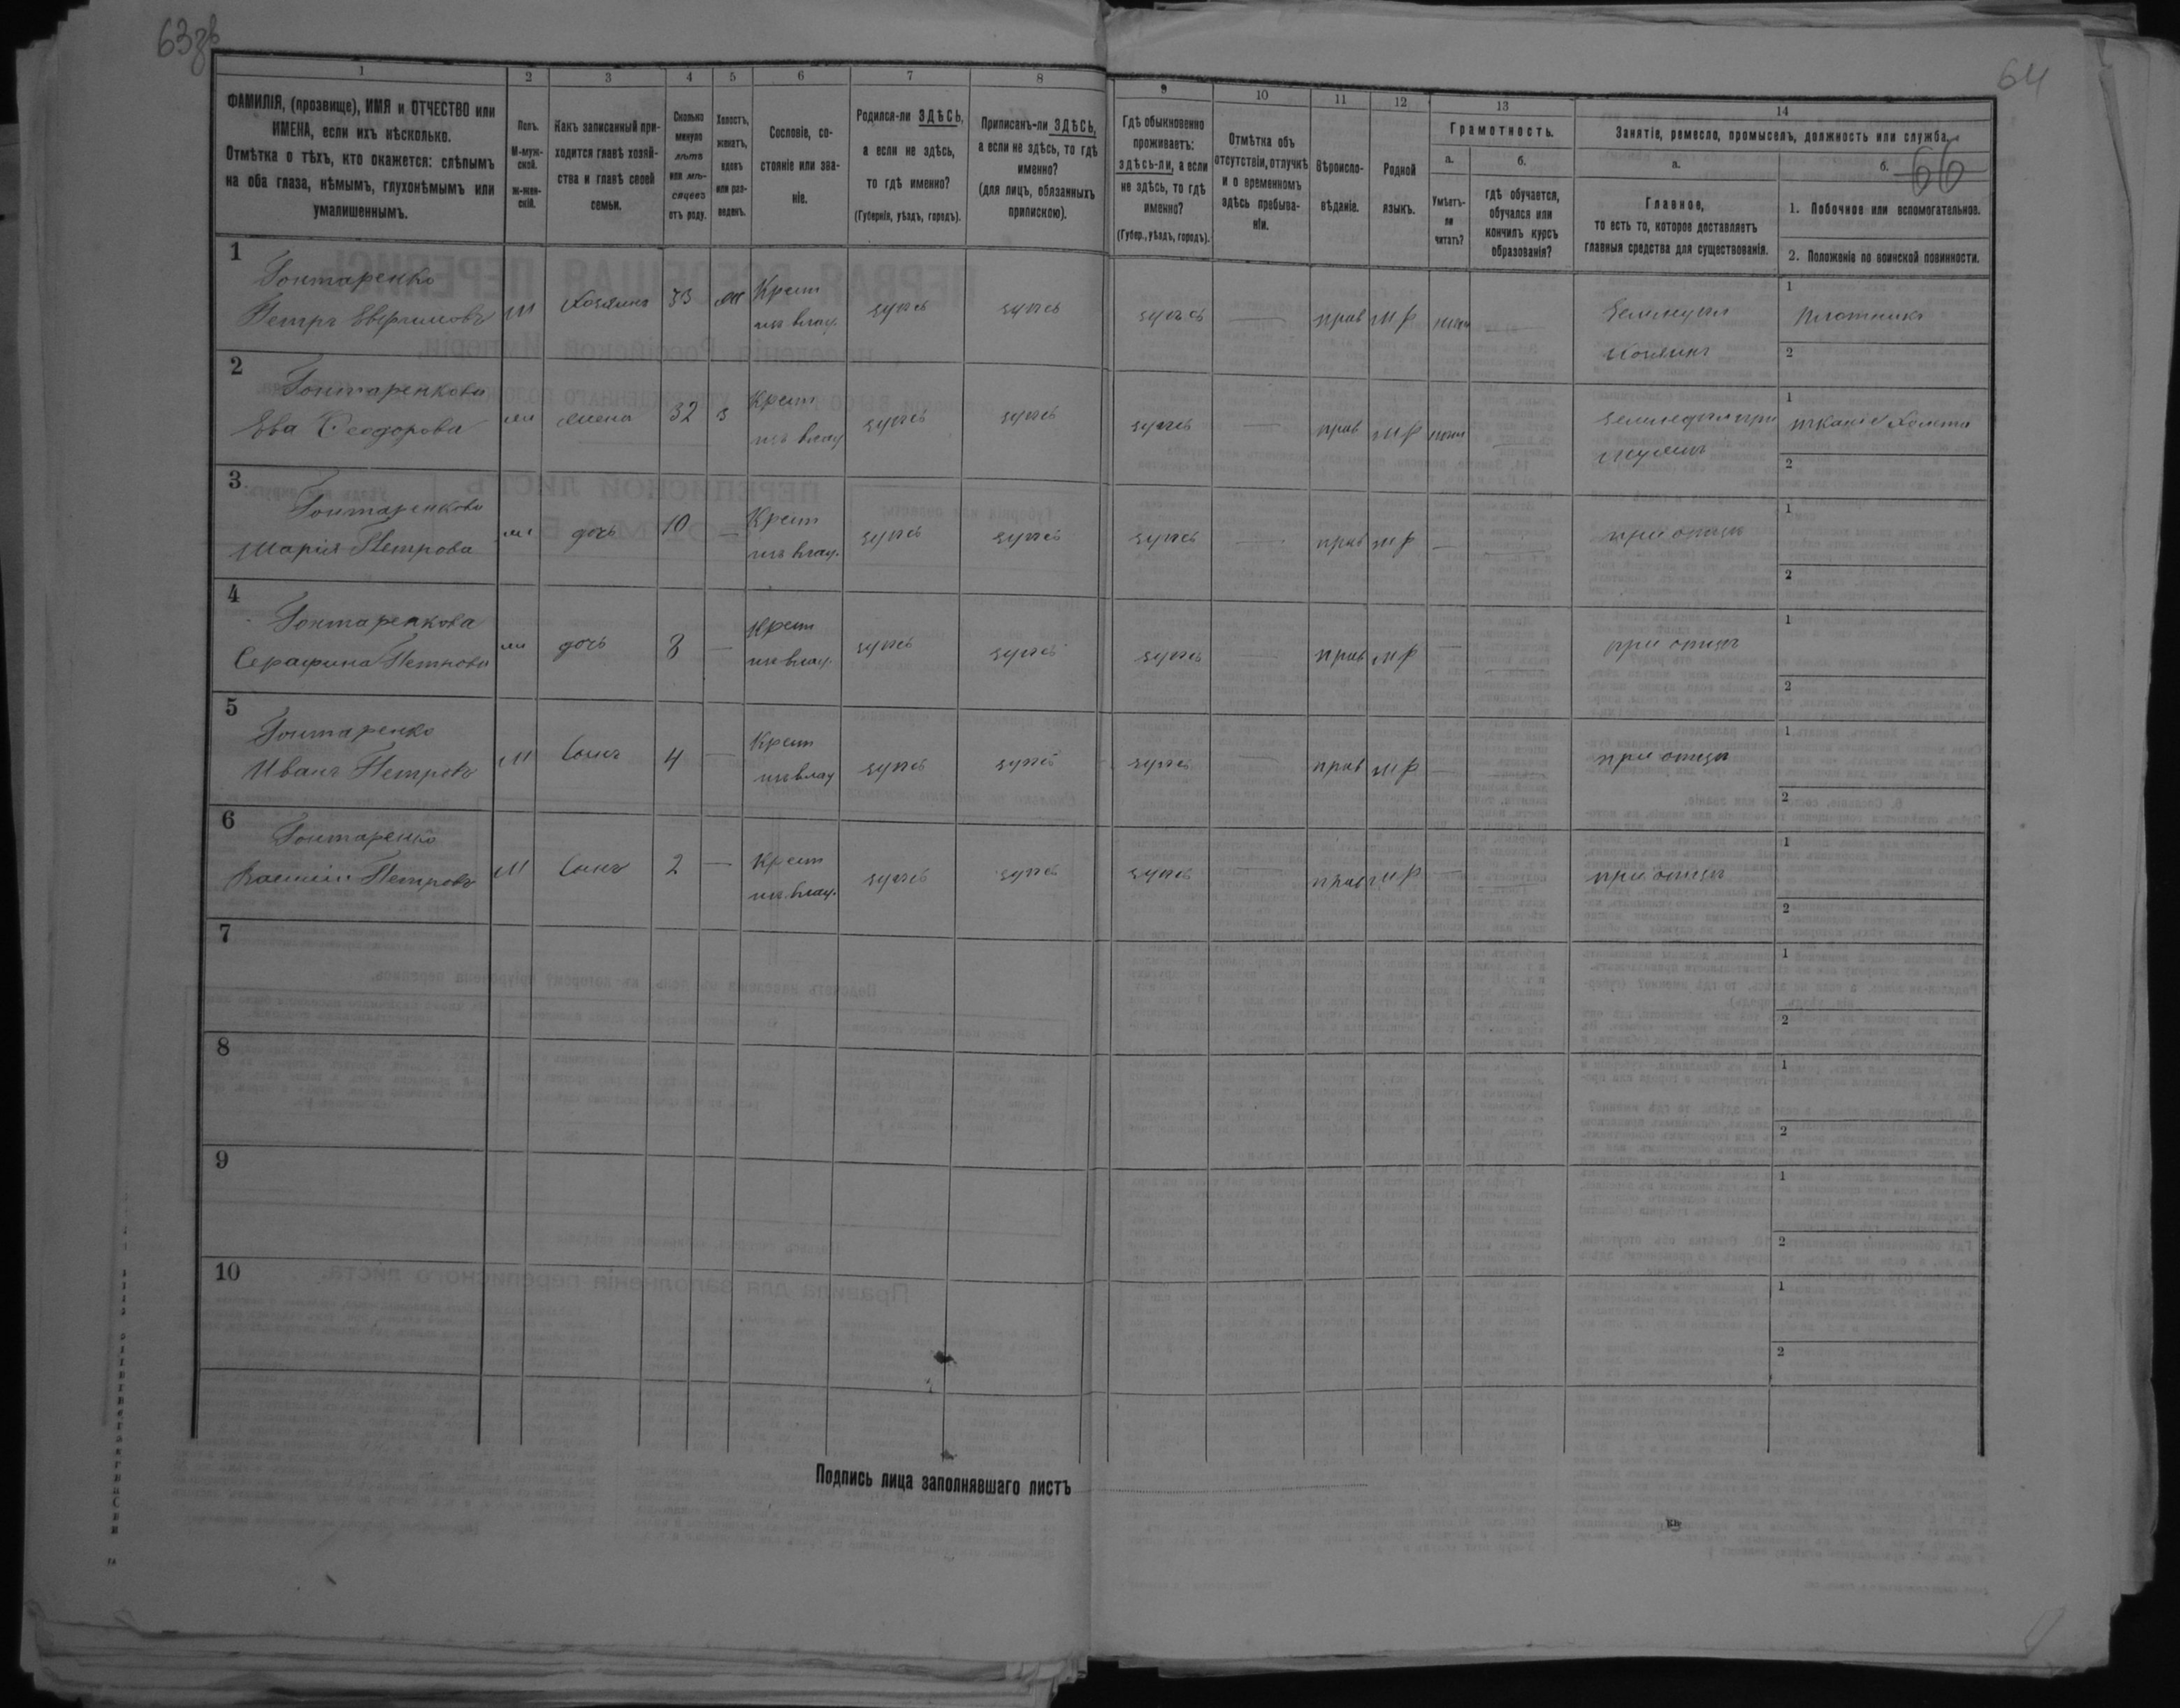 63зв
64
66
1 2 3 4 5 6 7 8 9 10 11 12 13 14
ФАМИЛІЯ, (прозвище), ИМЯ и ОТЧЕСТВО или
ИМЕНА, если ихъ нѣсколько.
Отмѣтка о тѣхъ, кто окажется: слѣпымъ
на оба глаза, нѣмымъ, глухонѣмымъ или
умалишеннымъ.
Полъ.
М-муж-
ской.
Ж-жен-
скій.
Какъ записанный при-
ходится главѣ хозяй-
ства и главѣ своей
семьи.
Сколько
минуло
лѣтъ
или мѣ-
сяцевъ
отъ роду.
Холостъ,
женатъ,
вдовъ
или раз-
веденъ.
Сословіе, со-
стояніе или зва-
ніе.
Родился-ли ЗДѢСЬ,
а если не здѣсь,
то гдѣ именно?
(Губернія, уѣздъ, городъ).
Приписанъ-ли ЗДѢСЬ,
а если не здѣсь, то гдѣ
именно?
(для лицъ, обязанныхъ
припискою).
Гдѣ обыкновенно
проживаетъ:
здѣсь-ли, а если
не здѣсь, то гдѣ
именно?
(Губер., уѣздъ, городъ).
Отмѣтка объ
отсутствіи, отлучкѣ
и о временномъ
здѣсь пребыва-
ніи.
Вѣроиспо-
вѣданіе.
Родной
языкъ.
Грамотность.
а.
Умѣетъ-
ли
читать?
б.
гдѣ обучается,
обучался или
кончилъ курсъ
образованія?
Занятіе, ремесло, промыселъ, должность или служба.
а.
Главное,
то есть то, которое доставляетъ
главныя средства для существованія.
б.
1. Побочное или вспомогательное.
2. Положеніе по воинской повинности.
1
Гонтаренко
Петръ Евфимовъ М Хозяинъ 33 Крест здѣсь здѣсь здѣсь — прав м р
изъ влад.
Хозяинъ
1 Плотникъ
2
2
Гонтаренкова
Ева Феодорова жена 32 з Крест здѣсь здѣсь здѣсь — прав м р —
изъ влад
1
2
3
Гонтаренкова
Марія Петрова дочь 10 — Крест здѣсь здѣсь здѣсь — прав м р — — при отцѣ
изъ влад.
1
2
4
Гонтаренкова
Серафина Петрова дочь 8 — Крест здѣсь здѣсь здѣсь — прав м р — — при отцѣ
изъ влад.
1
2
5
Гонтаренко
Иванъ Петровъ М Сынъ 4 — Крест здѣсь здѣсь здѣсь — прав м р — — при отцѣ
изъ влад
1
2
6
Гонтаренко
Василій Петровъ М Сынъ 2 — Крест здѣсь здѣсь здѣсь прав м р — при отцѣ
изъ влад.
1
2
7
1
2
8
1
2
9
1
2
10
1
2
Подпись лица заполнявшаго листъ